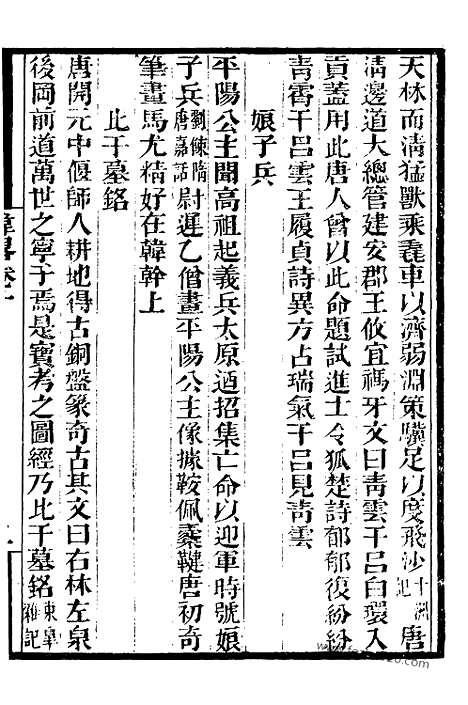 天林而清猛獸乘毳車以濟弱淵策驥足以度飛沙十洲記唐
清邊道大總管建安郡王攸宜禡牙文曰靑雲干呂白環入
貢蓋用此唐人曾以此命題試進士令狐楚詩郁郁復紛紛
靑霄干呂雲王履貞詩異方占瑞氣干呂見靑雲
娘子兵
平陽公主聞高祖起義兵太原迺招集亡命以迎軍時號娘
子兵劉餗隋唐嘉話尉遲乙僧畫平陽公主像據鞍佩櫜鞬唐初奇
筆畫馬尤精好在韓幹上
比干墓銘
唐開元中偃師人耕地得古銅盤篆奇古其文曰右林左泉
後岡前道萬世之寧于焉是寶考之圖經乃比干墓銘東臯雜記